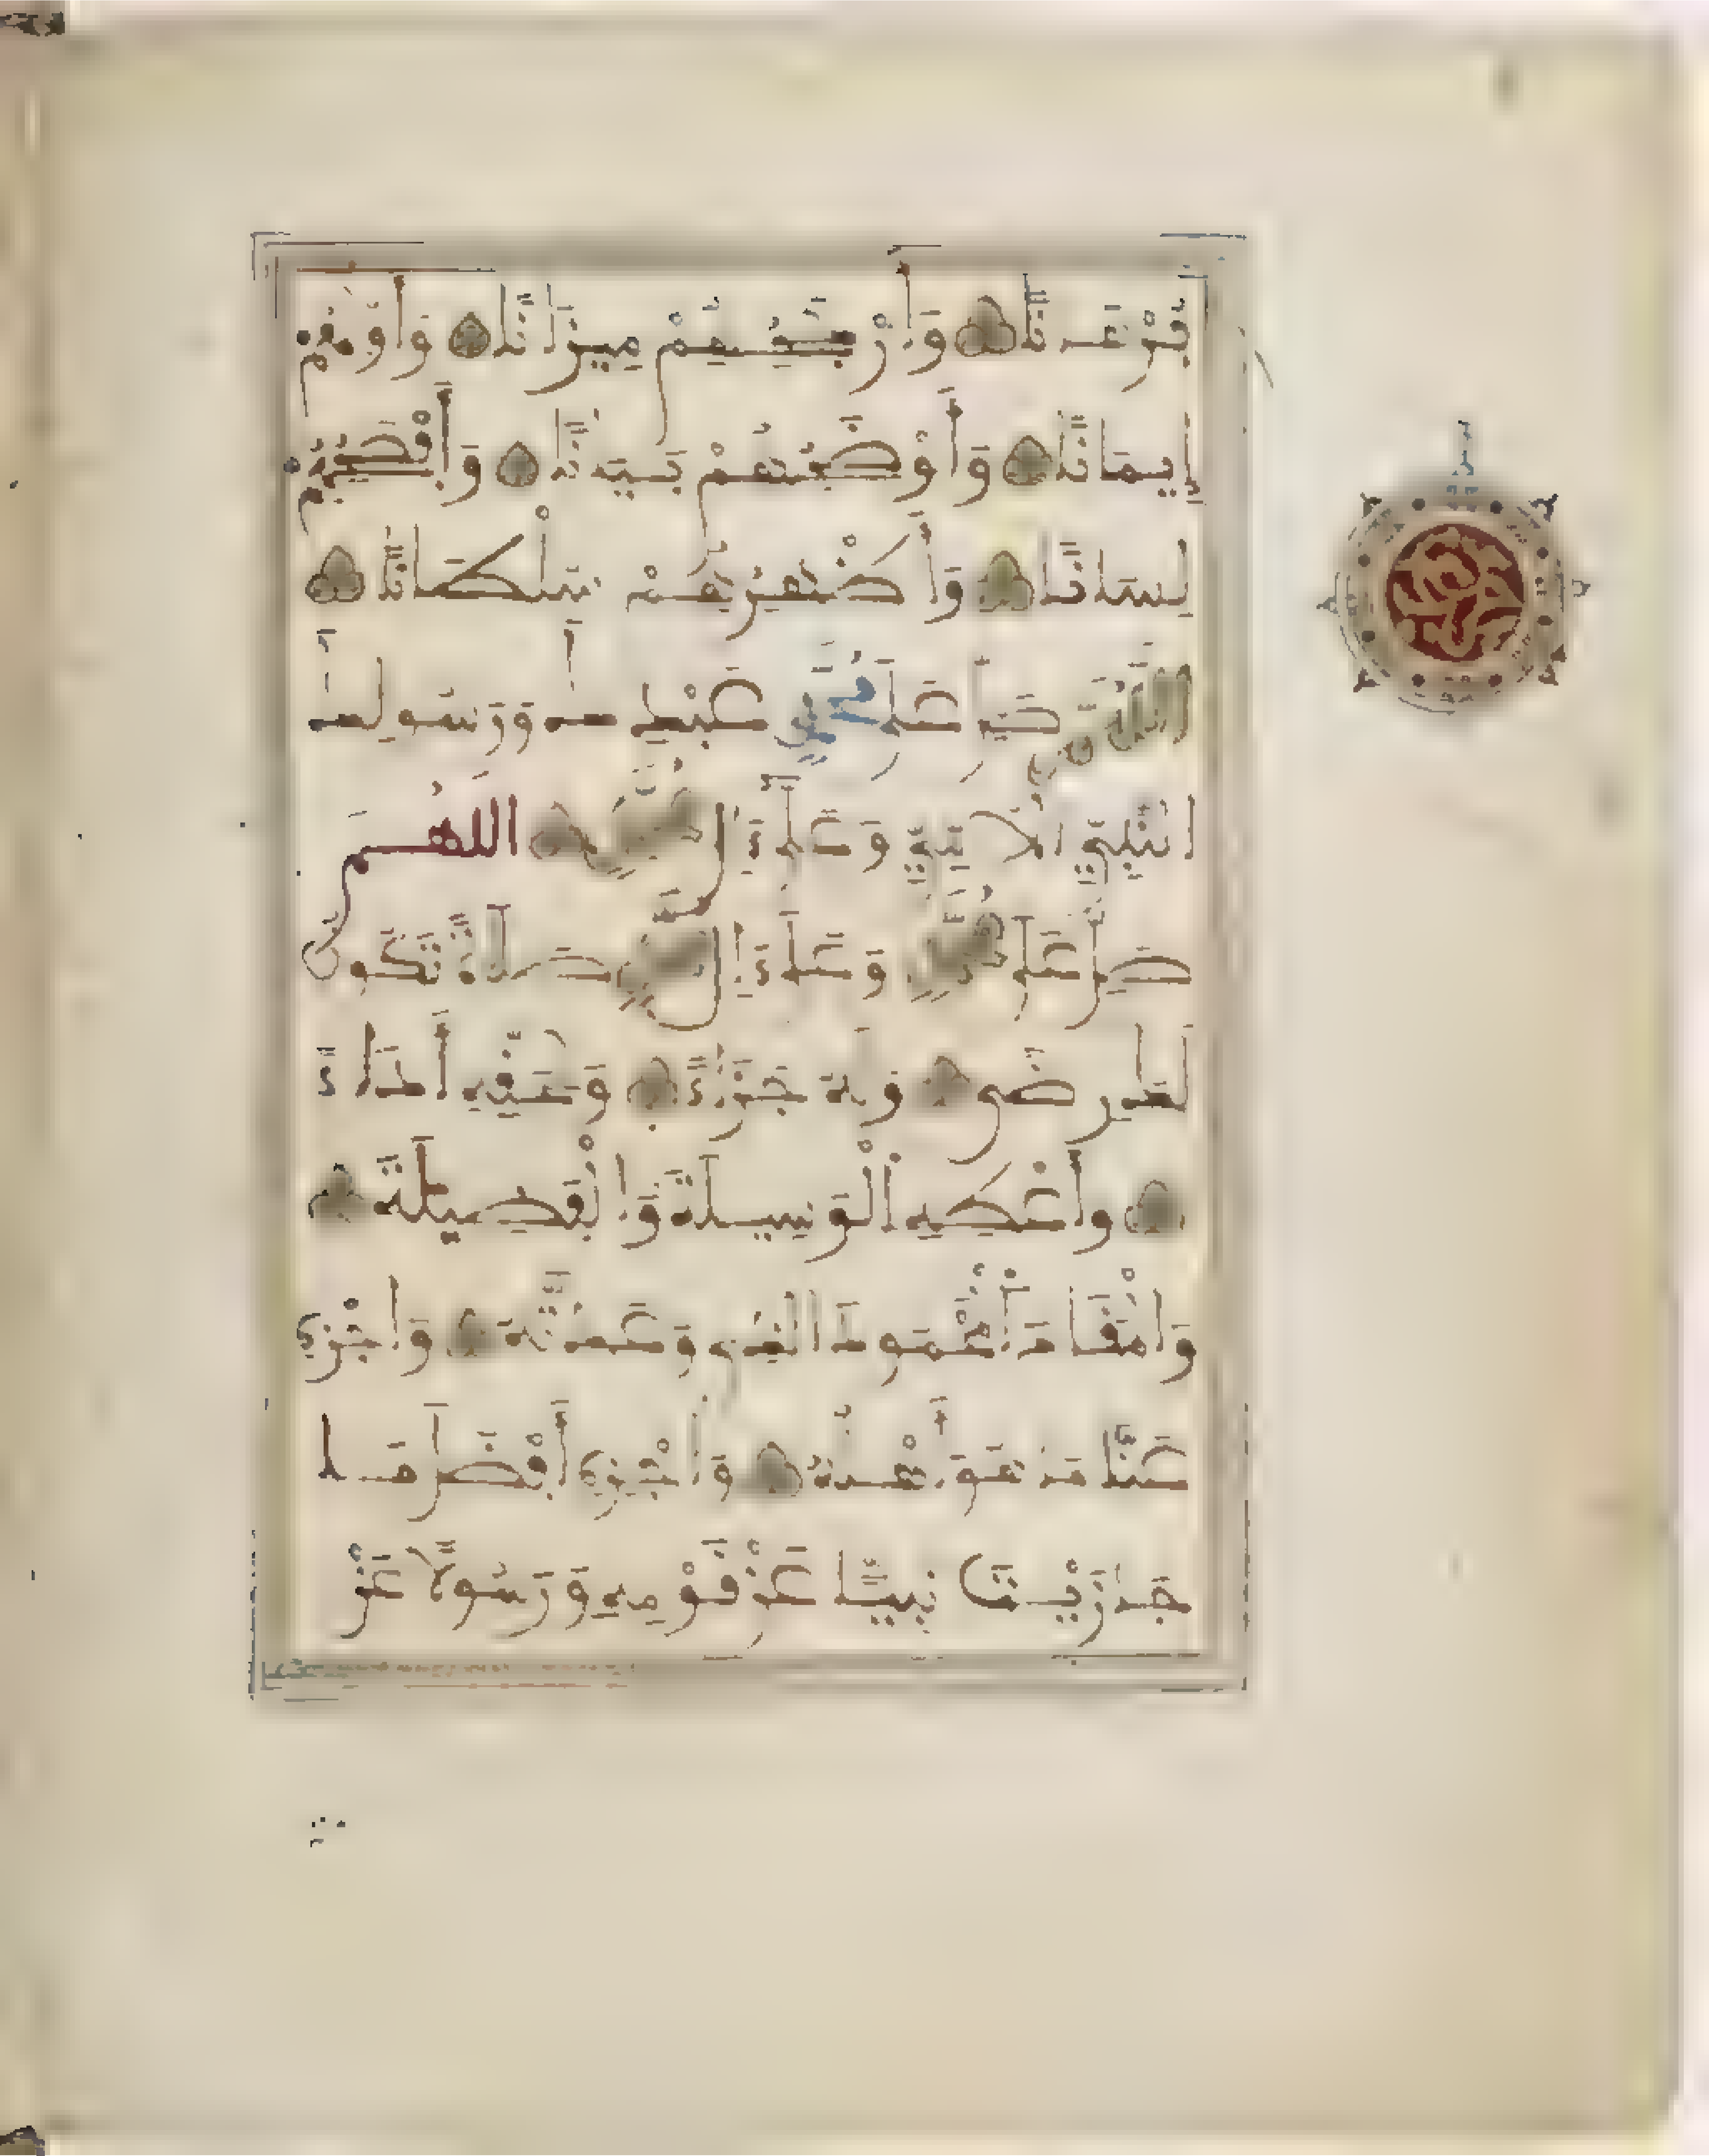 بُرْهَانًا وَأَرْجَحِهِمْ مِيزَانًا وَأَوْفَاهُمْ
إِيمَانًا وَأَوْضَحِهِمْ بَيَانًا وَأَفْصَحِهِمْ
لِسَانًا وَأَظْهَرِهِمْ سُلْطَانًا
اللَّهُمَّ صَلِّ عَلَى مُحَمَّدٍ عَبْدِكَ وَرَسُولِكَ
النَّبِيِّ الْأُمِّيِّ وَعَلَى آلِ مُحَمَّدٍ اللَّهُمَّ
صَلِّ عَلَى مُحَمَّدٍ وَعَلَى آلِ مُحَمَّدٍ صَلَاةً تَكُونُ
لَكَ رِضًى وَلَهُ جَزَاءً وَلِحَقِّهِ أَدَاءً
وَأَعْطِهِ الْوَسِيلَةَ وَالْفَضِيلَةَ
وَالْمَقَامَ الْمَحْمُودَ الَّذِي وَعَدْتَهُ وَاجْزِهِ
عَنَّا مَا هُوَ أَهْلُهُ وَاجْزِهِ أَفْضَلَ مَا
جَازَيْتَ نَبِيًّا عَنْ قَوْمِهِ وَرَسُولًا عَنْ